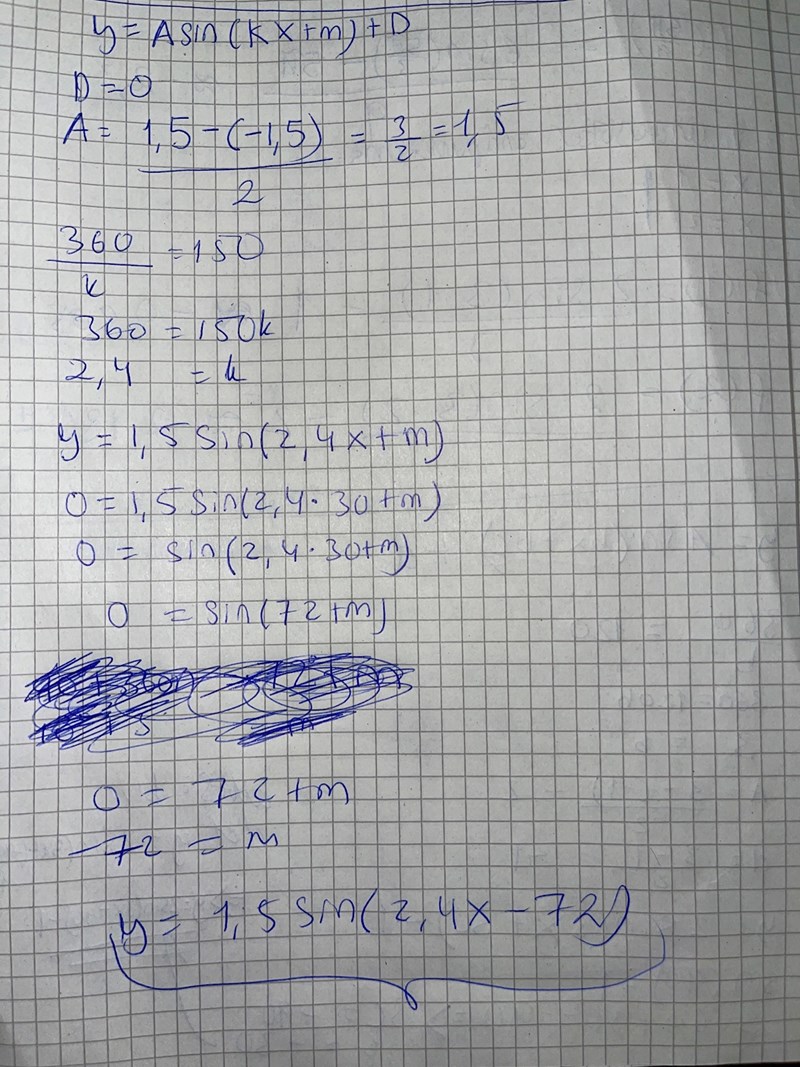 y = A sin(kx+m)+D
D = 0
A = 1,5-(-1,5)/2 = 3/2 = 1,5
360/k = 150
360 = 150k
2,4 = k
y = 1,5 sin(2,4x+m)
0 = 1,5 sin(2,4·30+m)
0 = sin(2,4·30+m)
0 = sin(72+m)
0 = 72+m
-72 = m
y = 1,5 sin(2,4x-72)